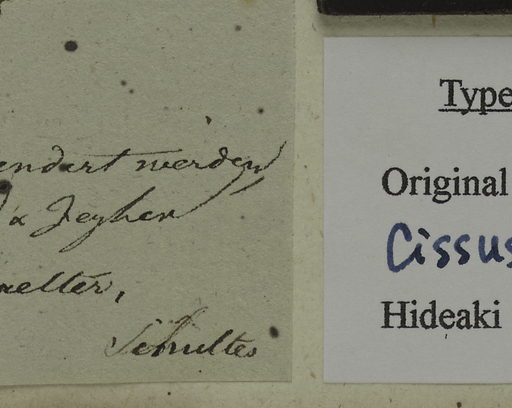 endert werden
Jeyhen
aelter,
Schultes
Type
Original
Cissus
Hideaki